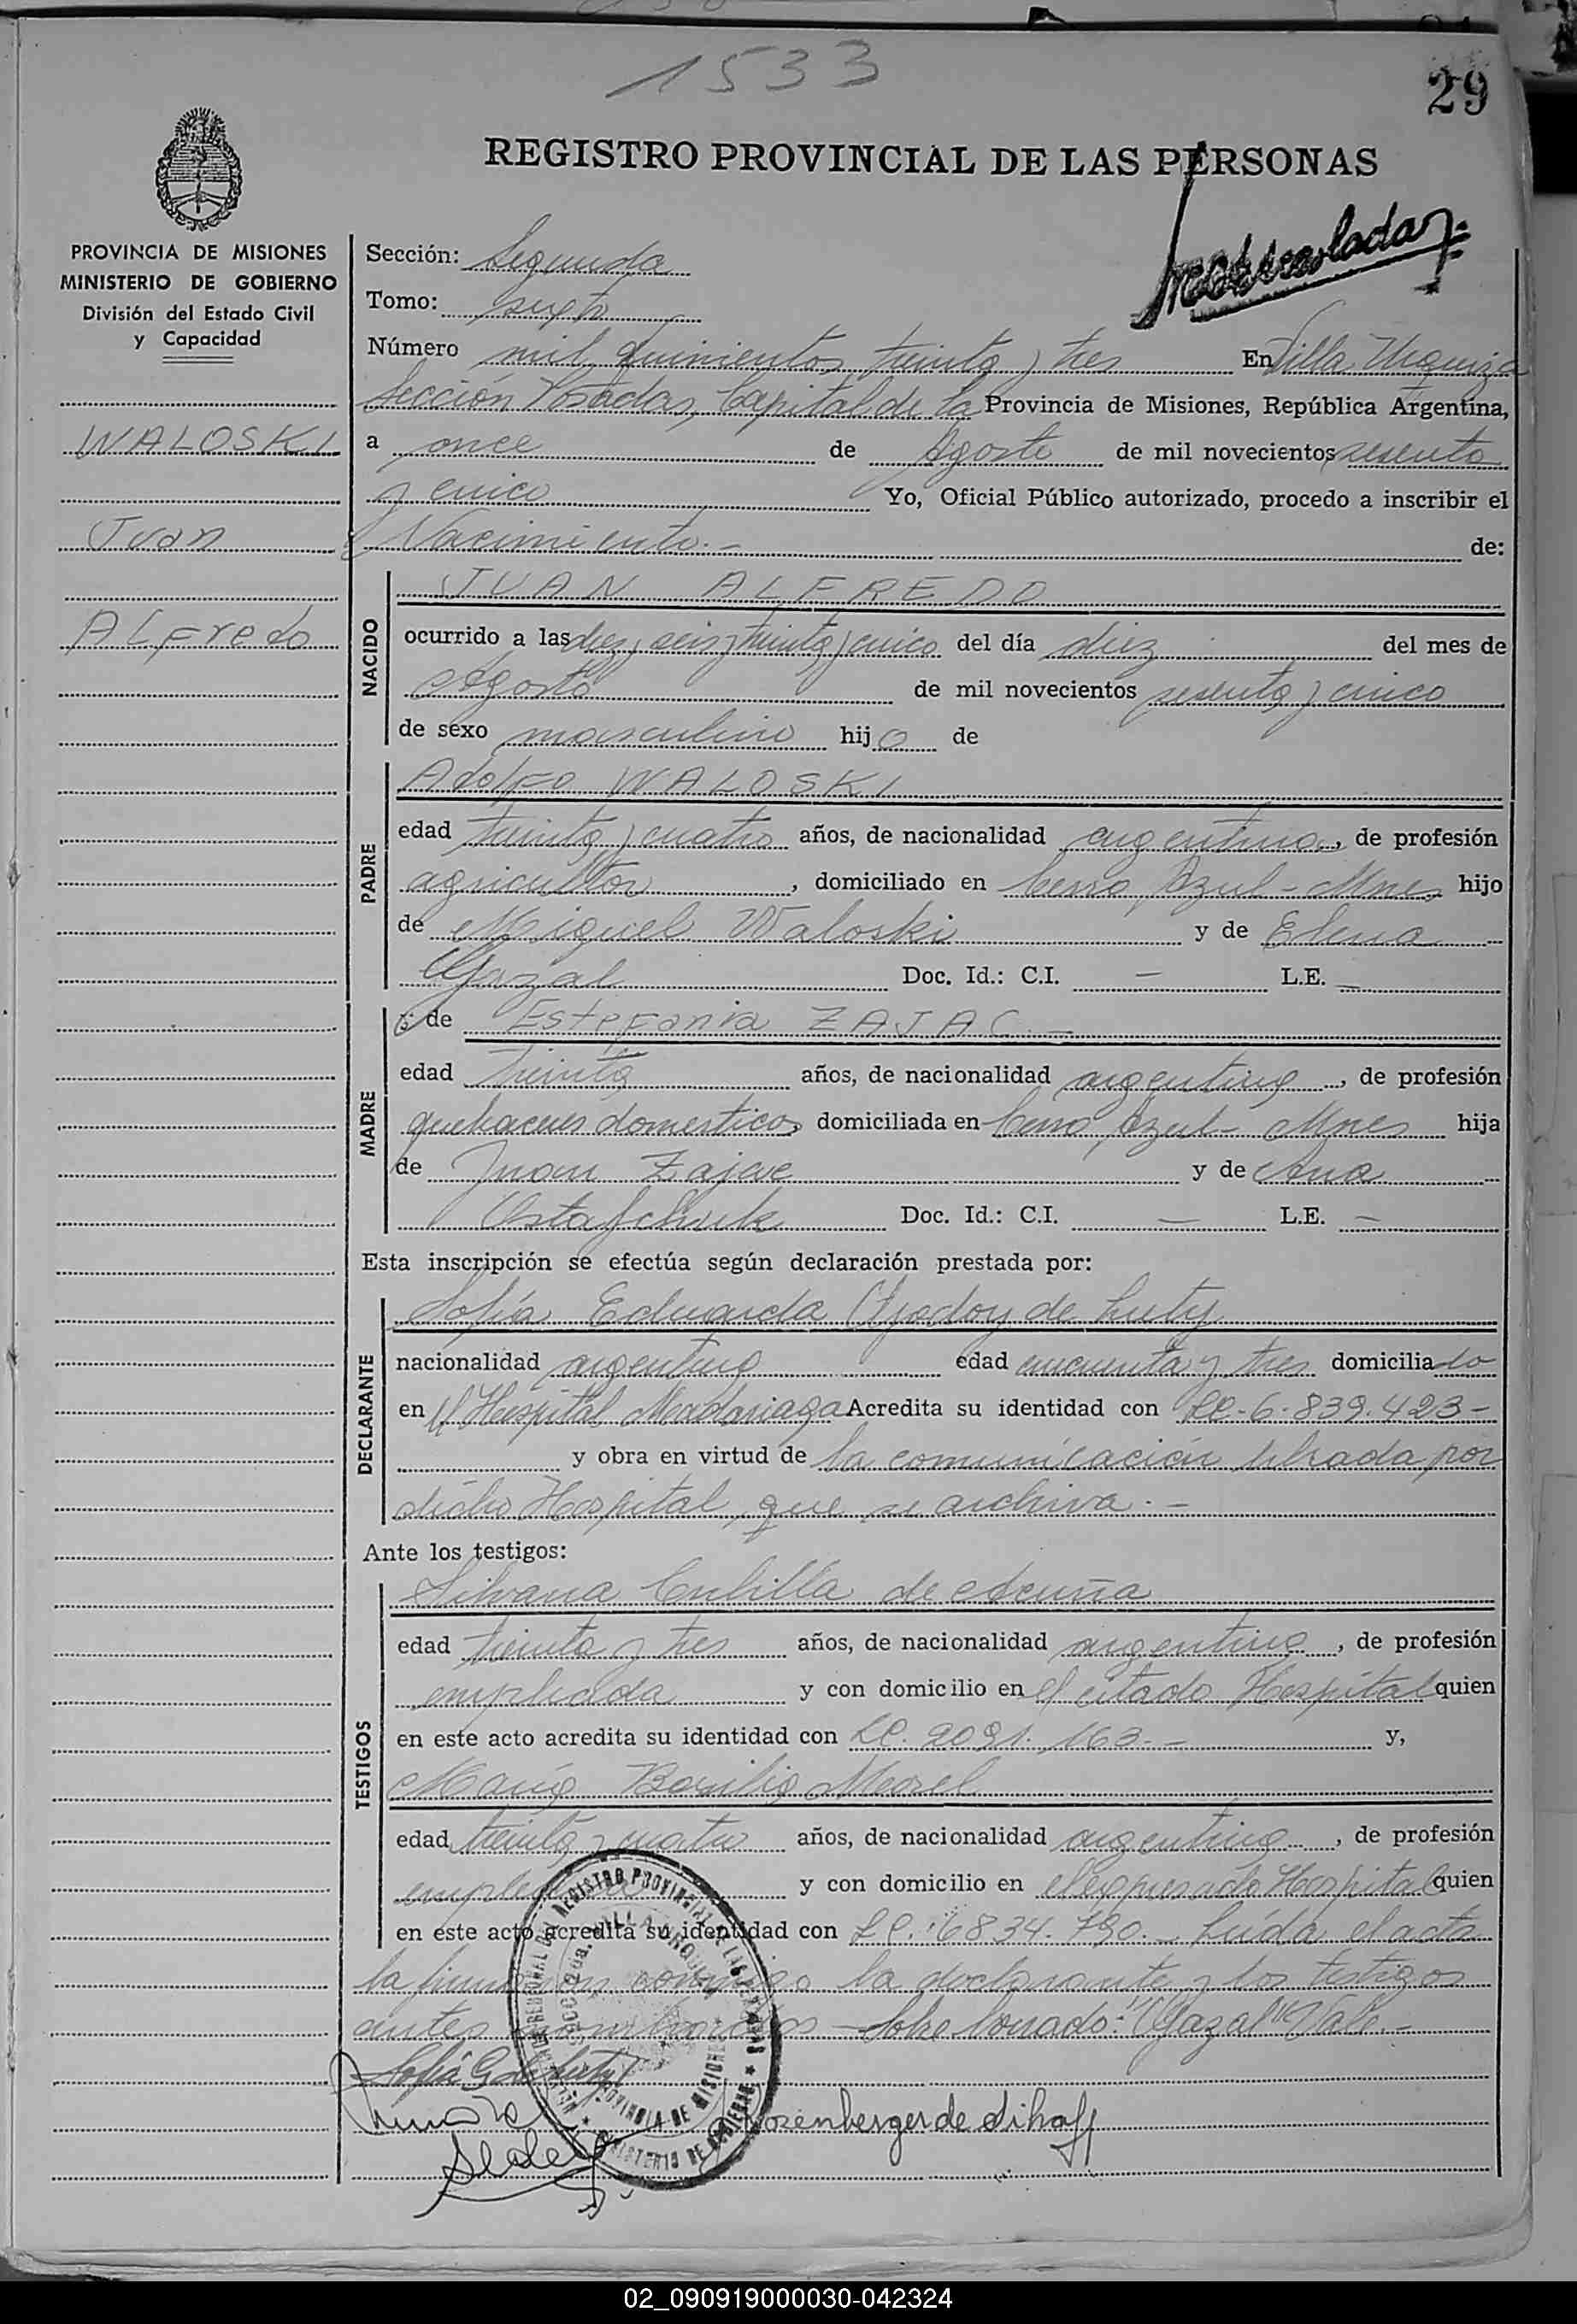 1533
29
REGISTRO PROVINCIAL DE LAS PERSONAS
PROVINCIA DE MISIONES
MINISTERIO DE GOBIERNO
División del Estado Civil
y Capacidad
WALOSKI
Juan
ALFredo
Sección: Segunda
Tomo: sexto
Número mil quinientos treinta y tres En Villa Urquiza
Sección Posadas, Capital de la Provincia de Misiones, República Argentina,
a once de Agosto de mil novecientos sesenta
y cinco Yo, Oficial Público autorizado, procedo a inscribir el
Nacimiento.- de:
NACIDO
JUAN ALFREDO
ocurrido a las diez y seis y treinta y cinco del día diez del mes de
Agosto de mil novecientos sesenta y cinco
de sexo masculino hijo de
PADRE
Adolfo WALOSKI
edad treinta y cuatro años, de nacionalidad argentina, de profesión
agricultor, domiciliado en Cerro Azul - Mnes hijo
de Miguel Waloski y de Elena
Gazal Doc. Id.: C.I. — L.E. —
MADRE
y de Estefania ZAJAC.-
edad treinta años, de nacionalidad argentina, de profesión
quehaceres domesticos, domiciliada en Cerro Azul - Mnes hija
de Juan Zajac y de Ana
Ostafchuk Doc. Id.: C.I. — L.E. —
Esta inscripción se efectúa según declaración prestada por:
DECLARANTE
Sofía Eduarda Godoy de Luty
nacionalidad argentina edad cincuenta y tres domiciliado
en el Hospital Madariaga Acredita su identidad con LC-6.839.423-
y obra en virtud de la comunicación librada por
dicho Hospital, que se archiva.-
Ante los testigos:
TESTIGOS
Silvana Cubilla de Acuña
edad treinta y tres años, de nacionalidad argentina, de profesión
empleada y con domicilio en el citado Hospital quien
en este acto acredita su identidad con LC. 2091.163.- y,
María Basilia Morel
edad treinta y cuatro años, de nacionalidad argentina, de profesión
empleada y con domicilio en el expresado Hospital quien
en este acto acredita su identidad con LC. 6834.790.- Leída el acta
la firman conmigo la declarante y los testigos
antes nombrados - Sobre borrado: "Gazal" Vale.-
Sofía G de Luty
02_090919000030-042324